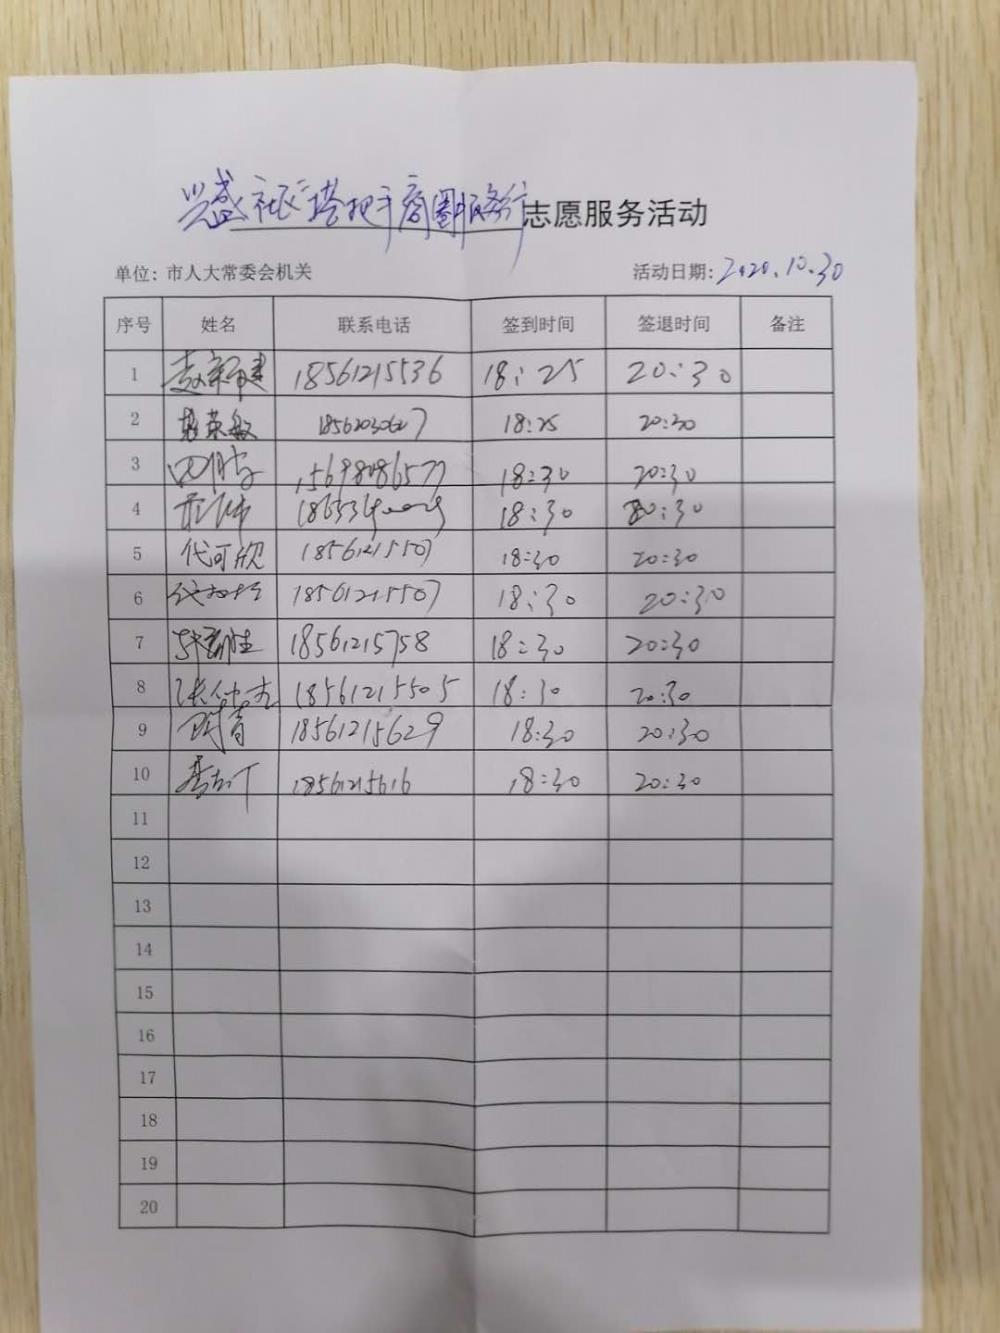 兴盛社区"搭把手商圈服务行志愿服务活动
单位：市人大常委会机关 活动日期：2020.10.30
序号 姓名 联系电话 签到时间 签退时间 备注
1 18561215536 18:25 20:30
2 18:25 20:30
3 15698086577 18:30 20:30
4 18:30 20:30
5 代可欣 18561215507 18:30 20:30
6 18561215507 18:30 20:30
7 18561215758 18:30 20:30
8 18561215505 18:30 20:30
9 18561215629 18:30 20:30
10 18561215616 18:30 20:30
11
12
13
14
15
16
17
18
19
20